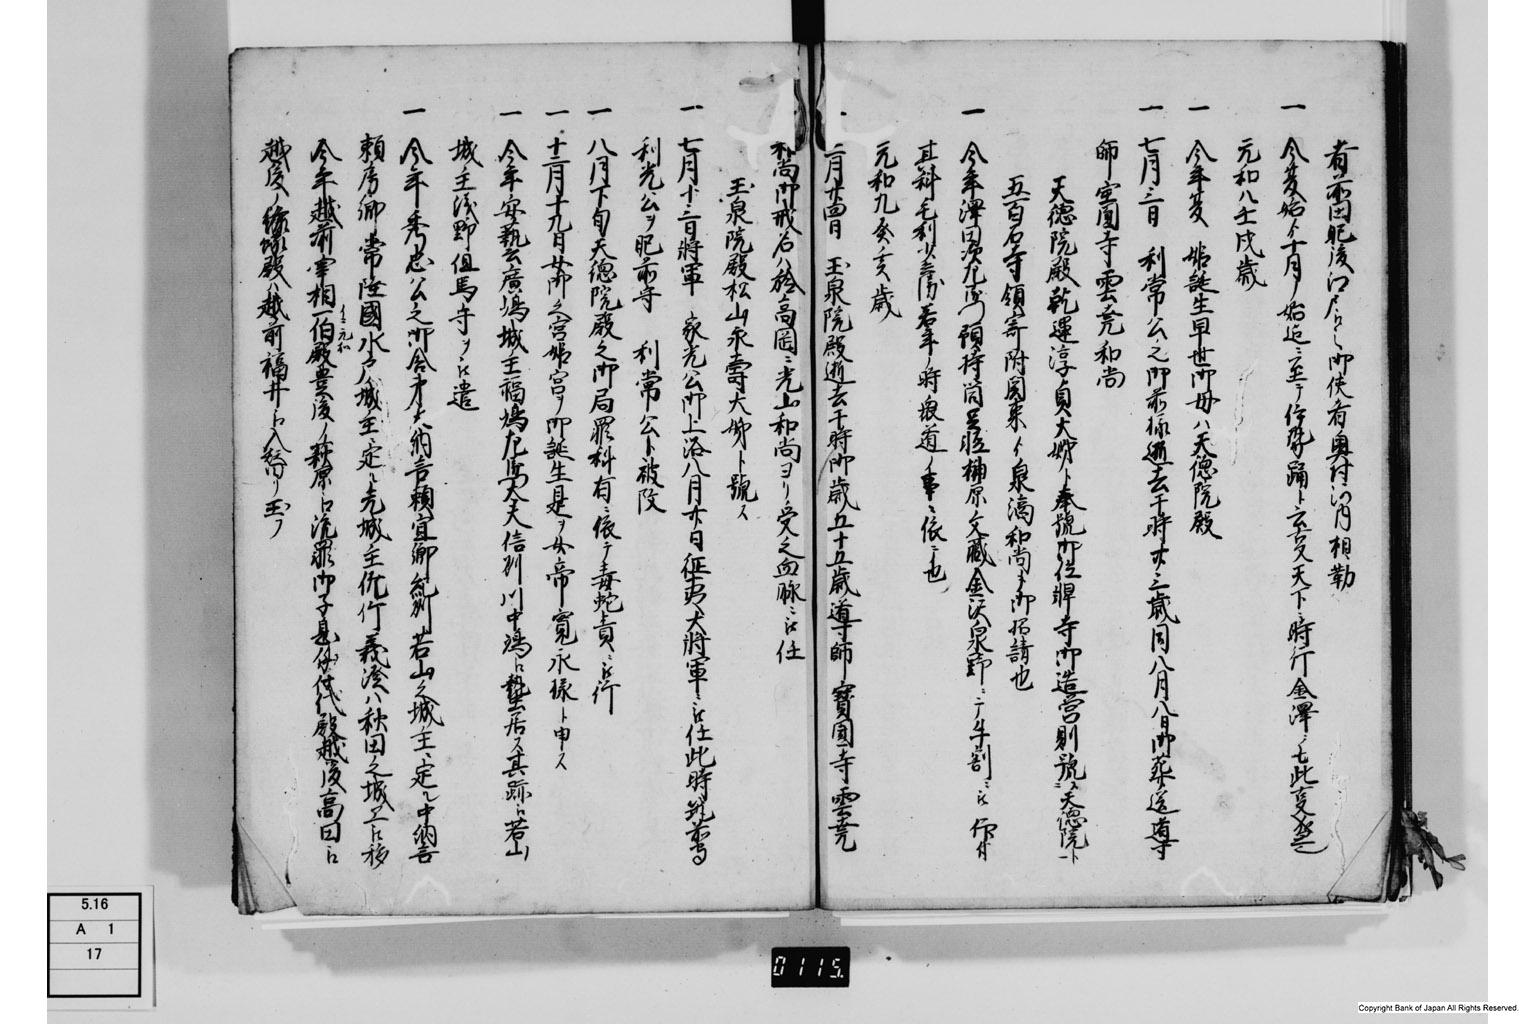 者前田肥後江尻ニ〆御使者奥村河内相勤
一 今夏始ト十月ノ始迄ニ至テ伊勢踊ト云夏天下ニ時行金澤ノモ此夏
元和八壬戌歳
一 今年夏 姫誕生早世御母ハ天徳院殿
一 七月三日 利常公之御前様逝去干時廿三歳同八月八日御葬送導
師宝圓寺雲堯和尚
天徳院殿乾運淳貞大姉ト奉號御位牌寺御造営則號ス天徳院ト
五百石寺領寄附関東ゟ泉滴和尚ヲ御招請也
一 今年澤田 預持筒足軽楠原文蔵金沢泉野ニテ牛割ニ被仰付
其科毛利 若年ノ時衆道ノ事ニ依テ也
元和九癸亥歳
一 二月廿四日 玉泉院殿逝去干時御歳五十五歳導師寶圓寺雲堯
和尚御戒名ハ於高岡ニ光山和尚ヨリ受之血脉ニ被任
玉泉院殿松山永壽大姉ト號ス
一 七月十三日将軍 家光公御上洛八月廿日征夷大将軍ニ被任此時筑前守
利光公ヲ肥前守 利常公ト被改
一 八月下旬天徳院殿之御局罪科有ニ依テ毒蛇責ニ被行
一 十一月十九日女御之宮姫宮ヲ御誕生是ヲ女帝寛永様ト申ス
一 今年安藝廣嶋城主福嶋左馬大夫信州川中嶋ニ蟄居ス其跡ニ若山
城主浅野但馬守ヲ被遣
一 今年秀忠公之御舎弟大納言頼宣卿紀州若山之城主ニ定ル中納言
頼房卿常陸國水戸ノ城主ニ定ル先城主佐竹義澄ハ秋田之城エ被移
今年越前宰相一伯殿豊後ノ萩原ニ流罪御子息仙千代殿越後高田ニ
イ元和
越後ノ 殿ハ越前福井ニ入替リ玉フ
5.16
A 1
17
0115.
Copyright Bank of Japan All Rights Reserved.